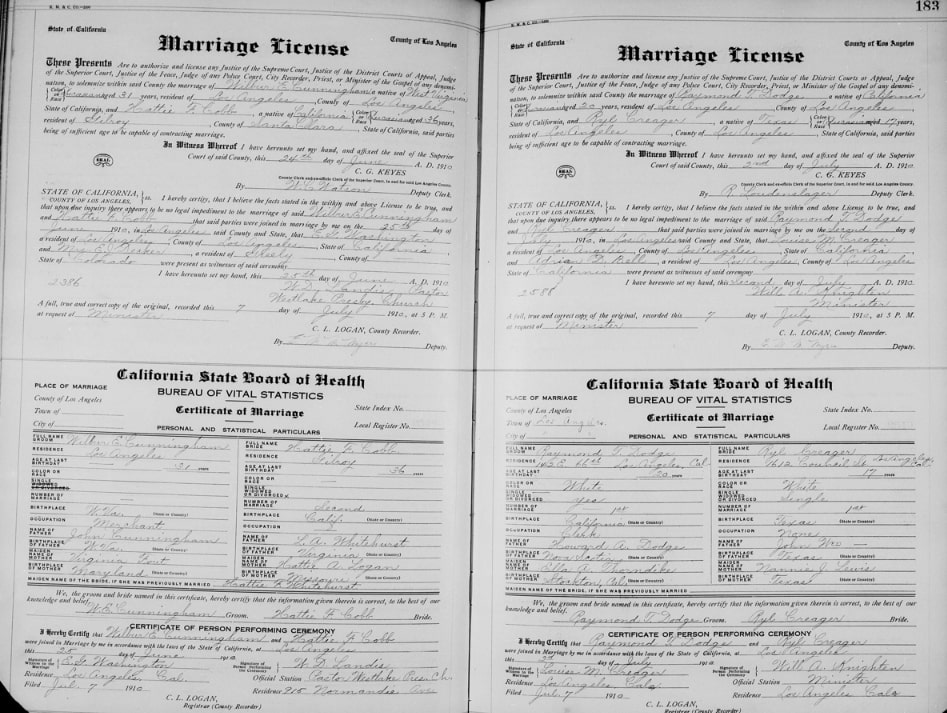 State of California
Marriage License
County of Los Angeles
These Presents Are to authorize and license any Justice of the Supreme Court, Justice of the District Courts of Appeal, Judge
of the Superior Court, Justice of the Peace, Judge of any Police Court, City Recorder, Priest, or Minister of the Gospel of any denomi-
nation, to solemnize within said County the marriage of Wilbur E. Cunningham a native of West Virginia
aged 31 years, resident of Los Angeles, County of Los Angeles
State of California, and Hattie F. Cobb, a native of California aged 36 years,
resident of Gilroy, County of Santa Clara, State of California, said parties
being of sufficient age to be capable of contracting marriage.
In Witness Whereof I have hereunto set my hand, and affixed the seal of the Superior
Court of said County, this 24th day of June A. D. 1910
SEAL
C. G. KEYES
County Clerk and ex-officio Clerk of the Superior Court, in and for said Los Angeles County.
By Deputy Clerk.
STATE OF CALIFORNIA,
COUNTY OF LOS ANGELES, ss.
I hereby certify, that I believe the facts stated in the within and above License to be true, and
that upon due inquiry there appears to be no legal impediment to the marriage of said Wilbur E. Cunningham
and Hattie F. Cobb that said parties were joined in marriage by me on the 25th day of
June 1910, in Los Angeles said County and State, that Washington
a resident of Los Angeles, County of Los Angeles, State of California
and a resident of County of
State of Colorado were present as witnesses of said ceremony.
I have hereunto set my hand, this 25th day of June A. D. 1910.
2386
W. D. Landis Pastor
Westlake Presby. Church
A full, true and correct copy of the original, recorded this 7 day of July 1910, at 5 P. M.
at request of Minister
C. L. LOGAN, County Recorder.
By Deputy.
California State Board of Health
BUREAU OF VITAL STATISTICS
PLACE OF MARRIAGE
County of Los Angeles
Certificate of Marriage
State Index No.
Town of
Local Register No.
City of
PERSONAL AND STATISTICAL PARTICULARS
FULL NAME GROOM Wilbur E. Cunningham
FULL NAME BRIDE Hattie F. Cobb
RESIDENCE Los Angeles
RESIDENCE Gilroy
AGE AT LAST BIRTHDAY 31 years
AGE AT LAST BIRTHDAY 36 years
COLOR OR RACE
COLOR OR RACE
SINGLE WIDOWED OR DIVORCED
SINGLE WIDOWED OR DIVORCED
NUMBER OF MARRIAGE
NUMBER OF MARRIAGE Second
BIRTHPLACE W. Va. (State or Country)
BIRTHPLACE Calif. (State or Country)
OCCUPATION Merchant
OCCUPATION
NAME OF FATHER John Cunningham
NAME OF FATHER L. A. Whitehurst
BIRTHPLACE OF FATHER W. Va. (State or Country)
BIRTHPLACE OF FATHER Virginia (State or Country)
MAIDEN NAME OF MOTHER Virginia
MAIDEN NAME OF MOTHER Hattie A. Logan
BIRTHPLACE OF MOTHER Maryland (State or Country)
BIRTHPLACE OF MOTHER Missouri (State or Country)
MAIDEN NAME OF THE BRIDE, IF SHE WAS PREVIOUSLY MARRIED Hattie F. Whitehurst
We, the groom and bride named in this certificate, hereby certify that the information given therein is correct, to the best of our
knowledge and belief.
W. E. Cunningham Groom. Hattie F. Cobb Bride.
CERTIFICATE OF PERSON PERFORMING CEREMONY
I Hereby Certify that Wilbur E. Cunningham and Hattie F. Cobb
were joined in Marriage by me in accordance with the laws of the State of California, at Los Angeles
this 25 day of June 1910
Signature of Witness to the Marriage Washington
Signature of Person performing the Ceremony W. D. Landis
Residence Los Angeles, Cal.
Official Station Pastor Westlake Pres. Ch.
Filed Jul. 7 1910
Residence 215 Normandie Ave
C. L. LOGAN,
Registrar (County Recorder)
183
State of California
Marriage License
County of Los Angeles
These Presents Are to authorize and license any Justice of the Supreme Court, Justice of the District Courts or Appeal, Judge
of the Superior Court, Justice of the Peace, Judge of any Police Court, City Recorder, Priest, or Minister of the Gospel of any denomi-
nation, to solemnize within said County the marriage of Raymond T. Dodge, a native of California
aged 20 years, resident of Los Angeles County of Los Angeles
State of California, and Ryle Creager, a native of Texas aged 17 years,
resident of Los Angeles, County of Los Angeles, State of California, said parties
being of sufficient age to be capable of contracting marriage.
In Witness Whereof I have hereunto set my hand, and affixed the seal of the Superior
Court of said County, this 2nd day of July A. D. 1910
SEAL
C. G. KEYES
County Clerk and ex-officio Clerk of the Superior Court, in and for said Los Angeles County.
By Deputy Clerk.
STATE OF CALIFORNIA,
COUNTY OF LOS ANGELES, ss.
I hereby certify, that I believe the facts stated in the within and above License to be true, and
that upon due inquiry there appears to be no legal impediment to the marriage of said Raymond T. Dodge
and Ryle Creager that said parties were joined in marriage by me on the second day of
July 1910, in Los Angeles said County and State, that Louise M. Creager
a resident of Los Angeles, County of Los Angeles, State of California,
and Adrian a resident of Los Angeles, County of Los Angeles
State of California were present as witnesses of said ceremony.
I have hereunto set my hand, this second day of July A. D. 1910.
2588
Will A. Knighten
Minister
A full, true and correct copy of the original, recorded this 7 day of July 1910, at 5 P. M.
at request of Minister
C. L. LOGAN, County Recorder.
By Deputy.
California State Board of Health
BUREAU OF VITAL STATISTICS
PLACE OF MARRIAGE
County of Los Angeles
Certificate of Marriage
State Index No.
Town of Los Angeles
Local Register No.
City of
PERSONAL AND STATISTICAL PARTICULARS
FULL NAME GROOM Raymond T. Dodge
FULL NAME BRIDE Ryle Creager
RESIDENCE Los Angeles, Cal
RESIDENCE 1612 Council St. Los Angeles, Cal.
AGE AT LAST BIRTHDAY 20 years
AGE AT LAST BIRTHDAY 17 years
COLOR OR RACE White
COLOR OR RACE White
SINGLE WIDOWED OR DIVORCED yes
SINGLE WIDOWED OR DIVORCED Single
NUMBER OF MARRIAGE 1st
NUMBER OF MARRIAGE 1st
BIRTHPLACE California (State or Country)
BIRTHPLACE Texas (State or Country)
OCCUPATION Clerk
OCCUPATION None
NAME OF FATHER Howard A. Dodge
NAME OF FATHER John
BIRTHPLACE OF FATHER (State or Country)
BIRTHPLACE OF FATHER Texas (State or Country)
MAIDEN NAME OF MOTHER Ella A. Thorndike
MAIDEN NAME OF MOTHER Nannie J. Lewis
BIRTHPLACE OF MOTHER Stockton, Cal. (State or Country)
BIRTHPLACE OF MOTHER Texas (State or Country)
MAIDEN NAME OF THE BRIDE, IF SHE WAS PREVIOUSLY MARRIED
We, the groom and bride named in this certificate, hereby certify that the information given therein is correct, to the best of our
knowledge and belief.
Raymond T. Dodge Groom. Ryle Creager Bride.
CERTIFICATE OF PERSON PERFORMING CEREMONY
I Hereby Certify that Raymond T. Dodge and Ryle Creager
were joined in Marriage by me in accordance with the laws of the State of California, at Los Angeles
this 2nd day of July 1910
Signature of Witness to the Marriage Louise M. Creager
Signature of Person performing the Ceremony Will A. Knighten
Residence Los Angeles Cala
Official Station Minister
Filed Jul. 7 1910
Residence Los Angeles Cala
C. L. LOGAN,
Registrar (County Recorder)